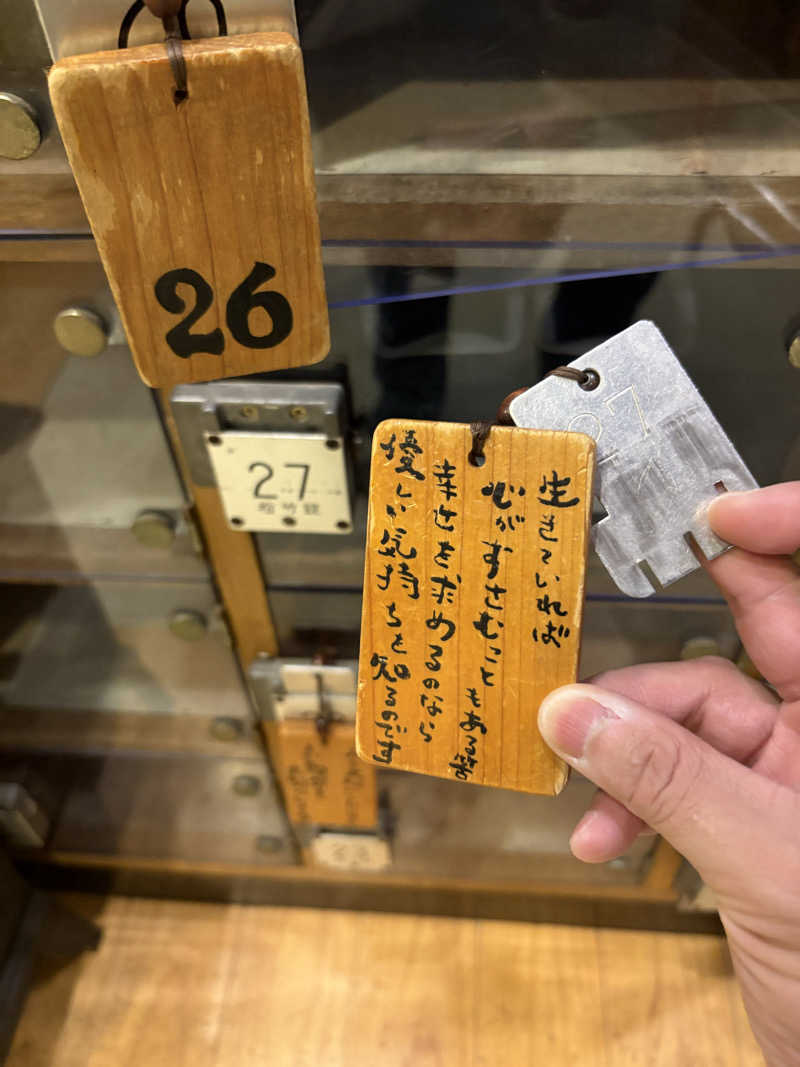 26
27
松竹錠
27
生きていれば
心がすさむこと
もある筈
幸せを求めるのなら
優しい気持ちを知るのです